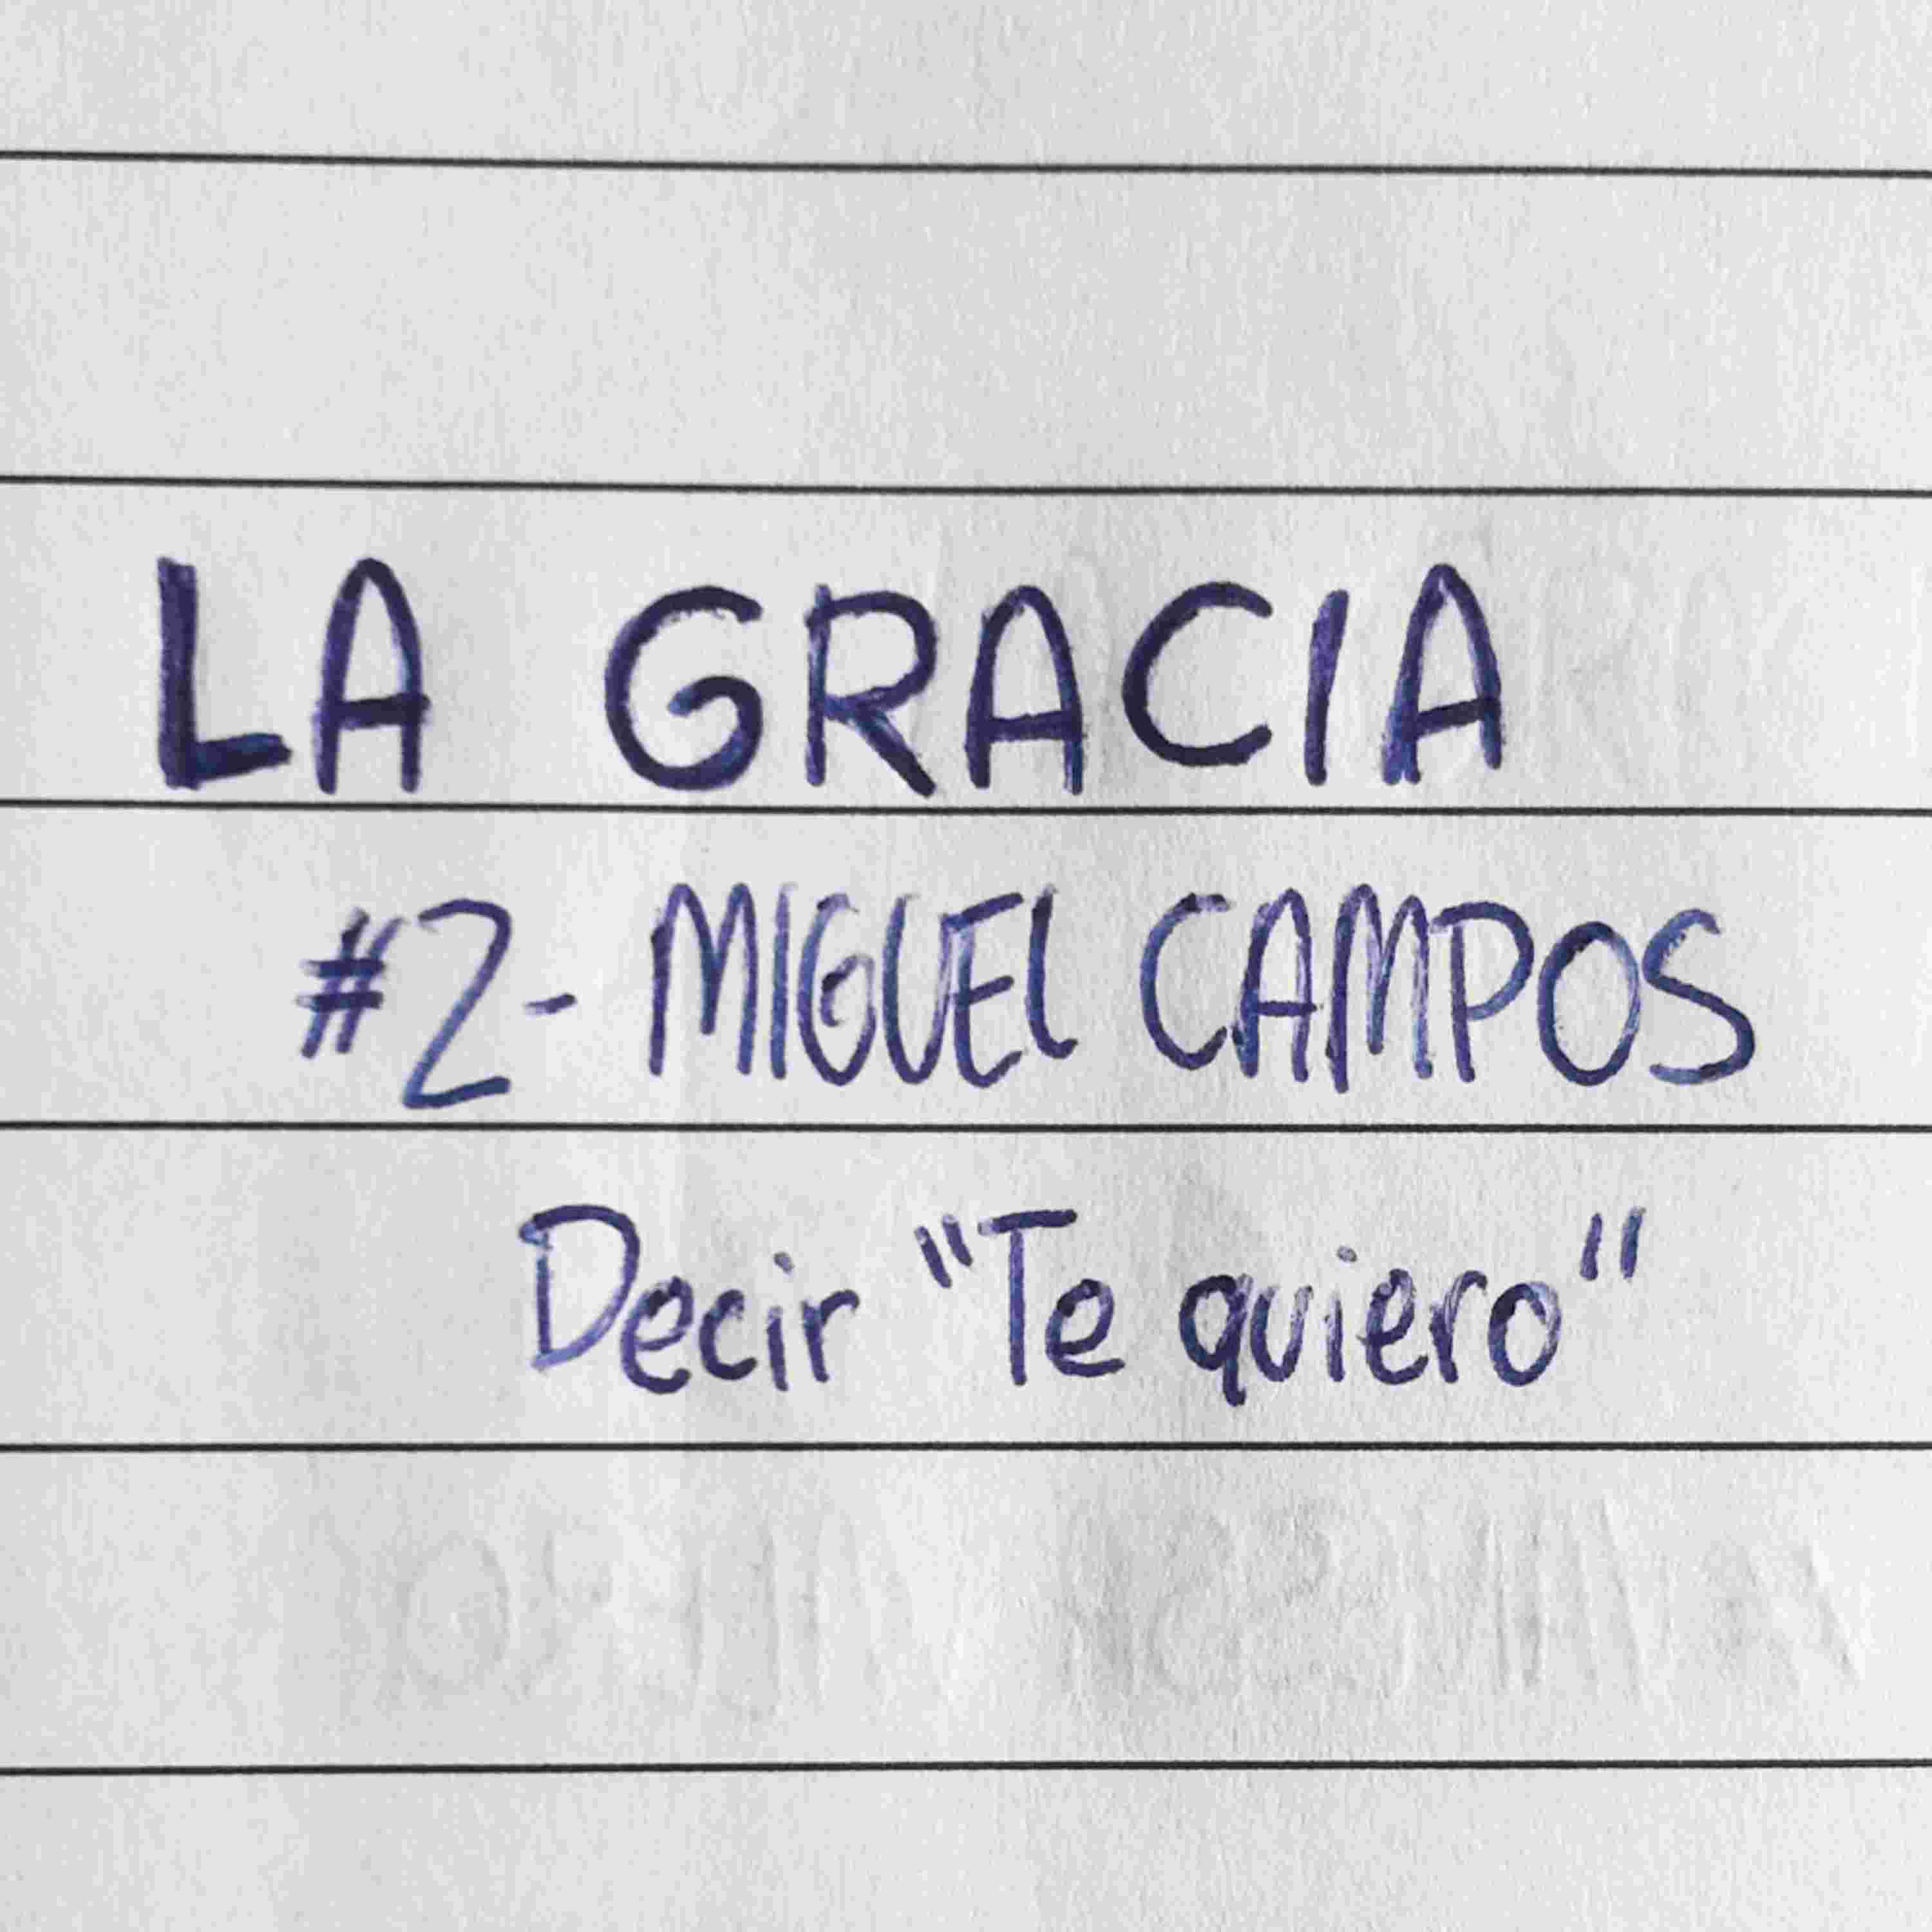 LA GRACIA
#2- MIGUEL CAMPOS
Decir "Te quiero"